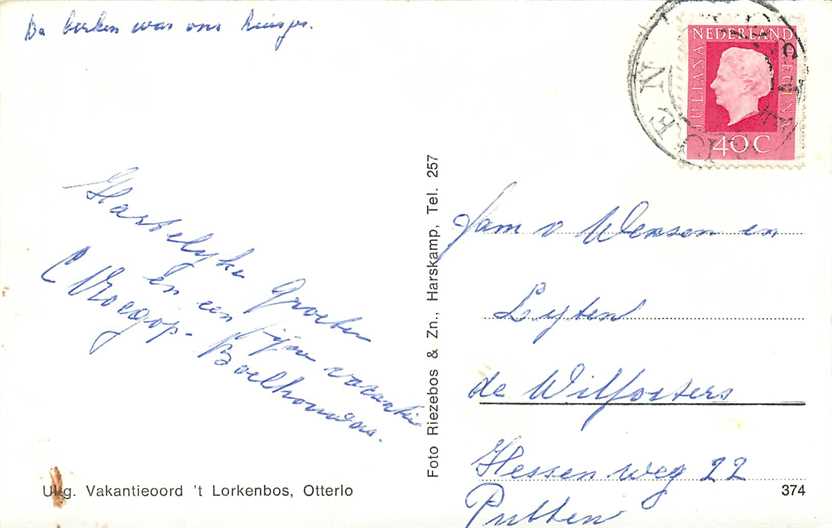 De berken was ons huisje.
Hartelijke groeten
en een fijne vacantie
C Vroegop - Boelhouwers.
Uitg. Vakantieoord 't Lorkenbos, Otterlo
Foto Riezebos & Zn., Harskamp, Tel. 257
NEDERLAND
JULIANA REGINA
40 C
EN
Fam v Wensen en
Lyten
de Wilfosters
Hessenweg 22
Putten
374